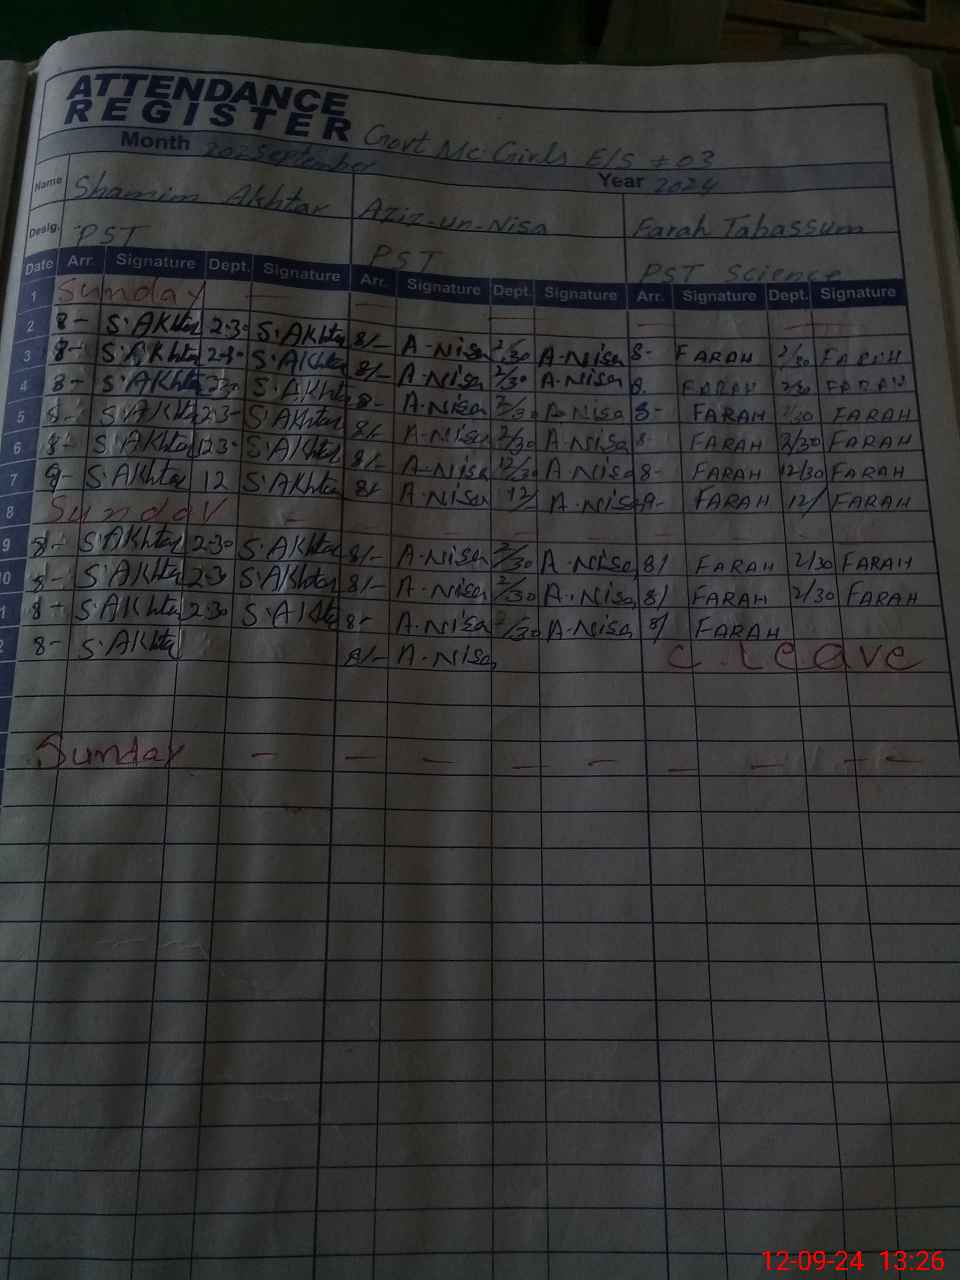 ATTENDANCE
REGISTER Govt Mc Girls E/S #03
Month September Year 2024
Name Shamim Akhtar Aziz-un-Nisa Farah Tabassum
Desig. PST PST PST Science
Date Arr. Signature Dept. Signature Arr. Signature Dept. Signature Arr. Signature Dept. Signature
1 Sunday — — — — — —
2 8- S.AKhtar 2.30 S.AKhtar 8/- A-Nisa 2/30 A-Nisa 8- FARAH 2/30 FARAH
3 8- S.AKhtar 2.30 S.AKhtar 8/- A-Nisa 2/30 A-Nisa 8- FARAH 2/30 FARAH
4 8- S.AKhtar 2.30 S.AKhtar 8- A-Nisa 2/30 A-Nisa 8- FARAH 2/30 FARAH
5 8- S.AKhtar 2.3- S.AKhtar 8/- A-Nisa 2/30 A-Nisa 8- FARAH 2/30 FARAH
6 8- S.AKhtar 12.30 S.AKhtar 8/- A-Nisa 12/30 A-Nisa 8- FARAH 12/30 FARAH
7 8- S.AKhtar 12 S.AKhtar 8/- A-Nisa 12/- A-Nisa FARAH 12/ FARAH
8 Sunday -
9 8- S.AKhtar 2.30 S.AKhtar 8/- A-Nisa 2/30 A-Nisa 8/ FARAH 2/30 FARAH
10 8- S.AKhtar 2.30 S.AKhtar 8/- A-Nisa 2/30 A-Nisa 8/ FARAH 2/30 FARAH
1 8- S.AKhtar 2.30 S.AKhtar 8- A-Nisa 2/30 A-Nisa 8/ FARAH
2 8- S.AKhtar 8/- A-Nisa C. leave
Sunday — — — — — — — — —
12-09-24 13:26